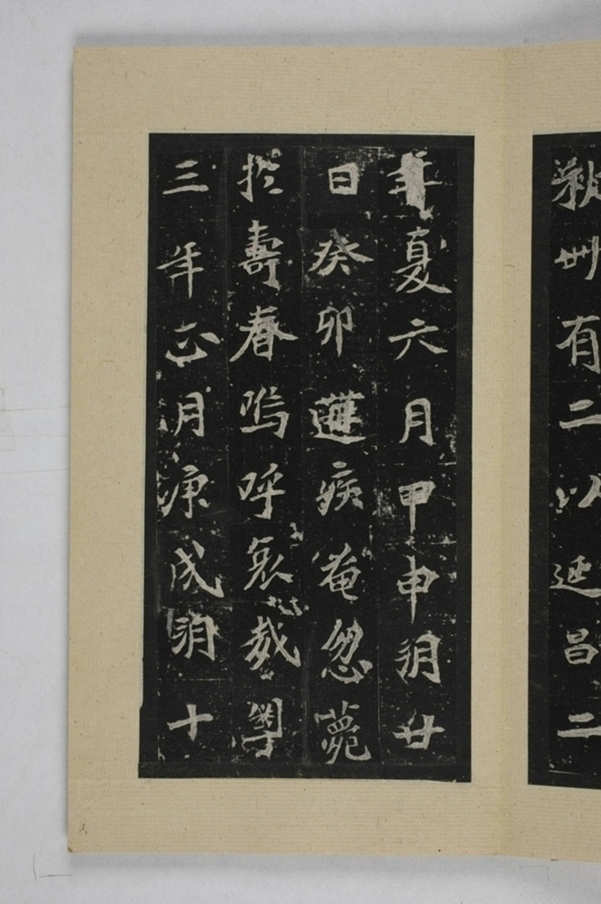 秋卌有二以延昌二
年夏六月甲申朔廿
日癸卯遘疾奄忽薨
於壽春嗚呼哀哉粵
三年正月庚戌朔十